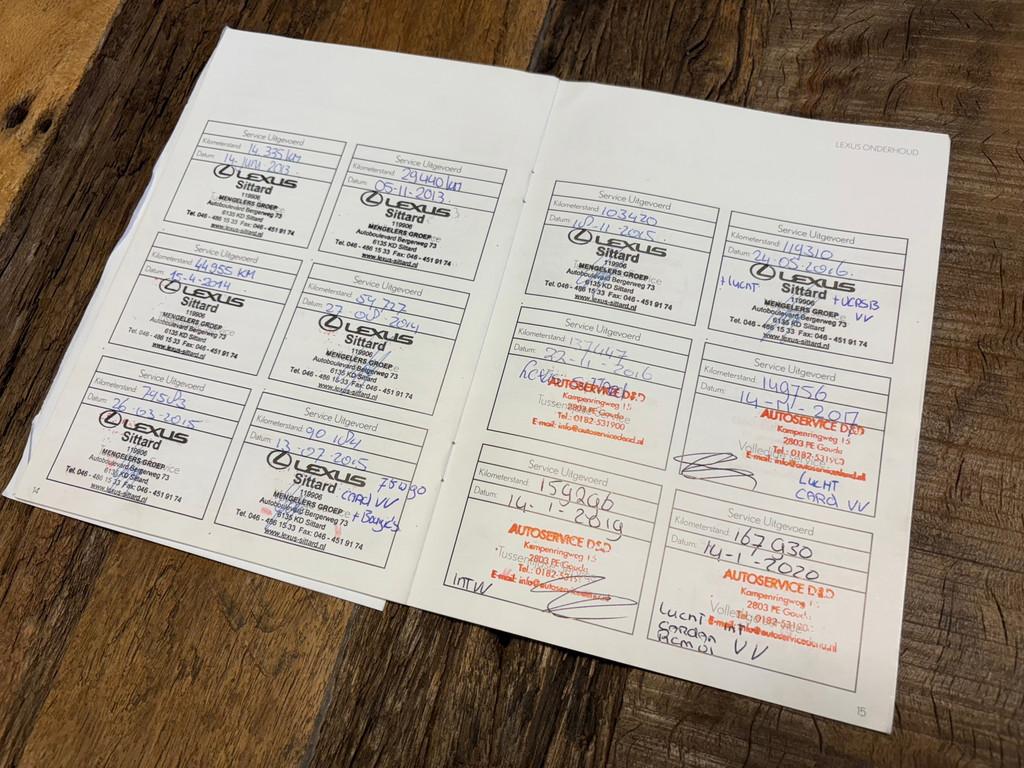 Service Uitgevoerd
Kilometerstand: 14.335 km
Datum: 14. 2013.
LEXUS
Sittard
119906
MENGELERS GROEP
Autoboulevard Bergerweg 73
6135 KD Sittard
Tel. 046 - 486 15 33 Fax: 046 - 451 91 74
www.lexus-sittard.nl
Service Uitgevoerd
Kilometerstand: 29440 km
Datum: 05-11-2013.
LEXUS
Sittard
119906
MENGELERS GROEP
Autoboulevard Bergerweg 73
6135 KD Sittard
Tel. 046 - 486 15 33 Fax: 046 - 451 91 74
www.lexus-sittard.nl
Service Uitgevoerd
Kilometerstand: 44955 KM
Datum: 15-4-2014.
LEXUS
Sittard
119906
MENGELERS GROEP
Autoboulevard Bergerweg 73
6135 KD Sittard
Tel. 046 - 486 15 33 Fax: 046 - 451 91 74
www.lexus-sittard.nl
Service Uitgevoerd
Kilometerstand: 59727
Datum: 27 2014
LEXUS
Sittard
119906
MENGELERS GROEP
Autoboulevard Bergerweg 73
6135 KD Sittard
Tel. 046 - 486 15 33 Fax: 046 - 451 91 74
www.lexus-sittard.nl
Service Uitgevoerd
Kilometerstand:
Datum: 26-03-2015
LEXUS
Sittard
119906
MENGELERS GROEP
Autoboulevard Bergerweg 73
6135 KD Sittard
Tel. 046 - 486 15 33 Fax: 046 - 451 91 74
www.lexus-sittard.nl
Service Uitgevoerd
Kilometerstand:
Datum: 13-07-2015
LEXUS
Sittard
119906
MENGELERS GROEP
CARD VV
Autoboulevard Bergerweg 73
6135 KD Sittard
Tel. 046 - 486 15 33 Fax: 046 - 451 91 74
www.lexus-sittard.nl
14
LEXUS ONDERHOUD
Service Uitgevoerd
Kilometerstand: 103420
Datum: 11-2015.
LEXUS
Sittard
119906
MENGELERS GROEP
Autoboulevard Bergerweg 73
6135 KD Sittard
Tel. 046 - 486 15 33 Fax: 046 - 451 91 74
www.lexus-sittard.nl
Service Uitgevoerd
Kilometerstand: 119310
Datum: 24-05-2016.
LEXUS
Sittard
+ LUCHT
119906
VV
MENGELERS GROEP
Autoboulevard Bergerweg 73
6135 KD Sittard
Tel. 046 - 486 15 33 Fax: 046 - 451 91 74
www.lexus-sittard.nl
Service Uitgevoerd
Kilometerstand: 137447
Datum: 22-11-2016
AUTOSERVICE D&D
Kampenringweg 15
2803 PE Gouda
Tel.: 0182-531900
E-mail: info@autoservicedend.nl
Service Uitgevoerd
Kilometerstand: 149756
Datum: 14-11-2017
AUTOSERVICE D&D
Kampenringweg 15
2803 PE Gouda
Tel.: 0182-531900
E-mail: info@autoservicedend.nl
LUCHT
CARD VV
Service Uitgevoerd
Kilometerstand: 159296
Datum: 14-1-2019
AUTOSERVICE D&D
Kampenringweg 15
2803 PE Gouda
Tel.: 0182-5319
E-mail: info@autoservicedend.nl
INT VV
Service Uitgevoerd
Kilometerstand: 167930
Datum: 14-1-2020
AUTOSERVICE D&D
Kampenringweg 1
2803 PE Gouda
Tel.: 0182-531900
E-mail: info@autoservicedend.nl
LUCHT INT
CARDAN VV
15